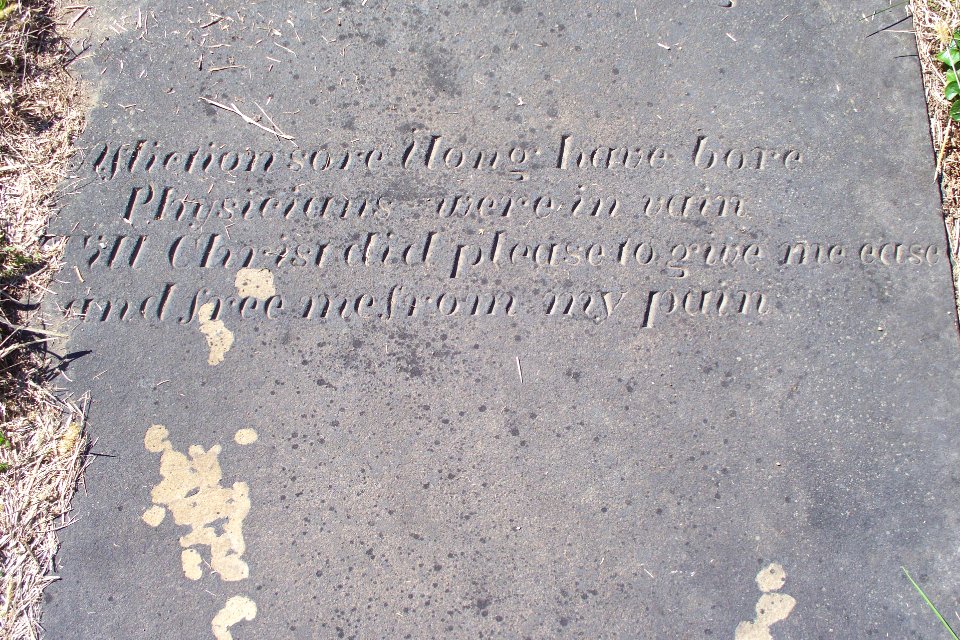 Afliction sore Ilong have bore
Physicians were in vain
Till Christ did please to give me ease
and free me from my pain